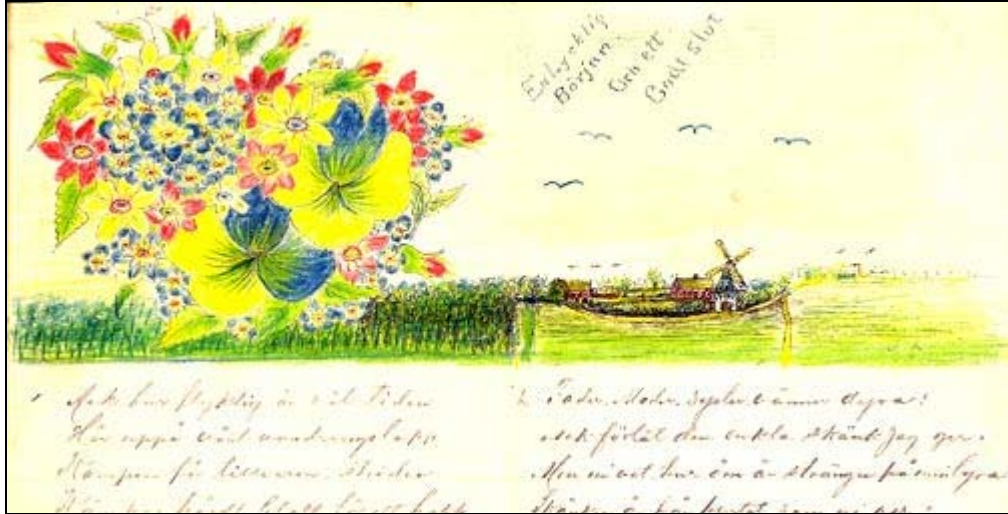 En lycklig
Början
Och ett
Godt slut
1 Ack hur flyktig är väl tiden
Här uppå vårt vandringslopp
Kampen för tillvaron. Striden
2. Fader, Moder, Syster, vänner dyra!
Ack förlåt den enkla skänk jag ger.
Men ni vet hur öm är strängen på min lyra